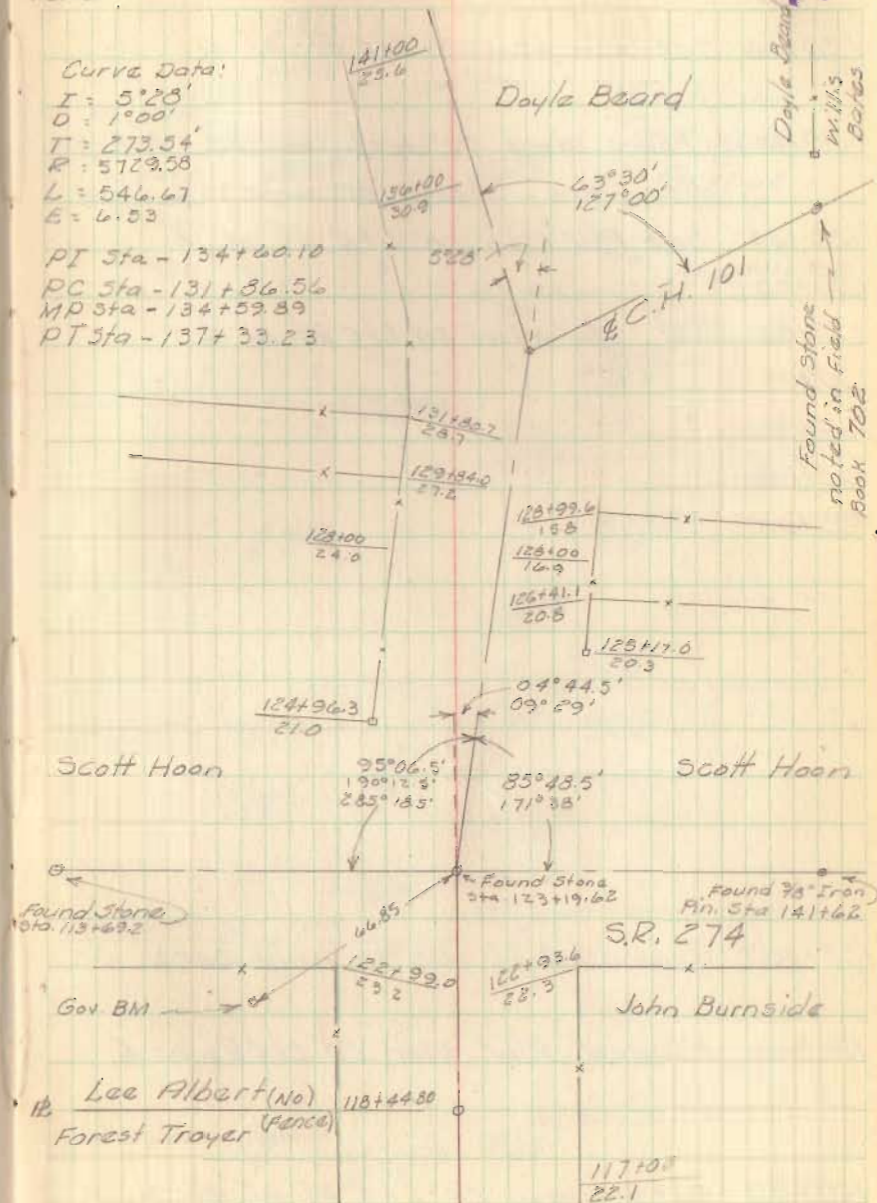 Curve Data:
I = 5°28'
D = 1°00'
T = 273.54'
R = 5729.58
L = 546.67
E = 6.53
PI Sta - 134+60.10
PC Sta - 131+86.56
MP Sta - 134+59.89
PT Sta - 137+33.23
141+00
25.6
Doyle Beard
Doyle Beard
Willis
Bates
136+00
30.9
63°30'
127°00'
5°28'
℄ C.H. 101
Found Stone
noted in Field
Book 702
131+80.7
28.7
129+84.0
27.2
128+00
24.0
128+99.6
15.8
128+00
16.9
126+41.1
20.8
125+17.0
20.3
124+96.3
21.0
04°44.5'
09°29'
Scott Hoon
95°06.5'
190°12.5'
285°18.5'
85°48.5'
171°38'
Scott Hoon
Found Stone
Sta. 113+69.2
Found Stone
Sta. 123+19.62
Found 7/8" Iron
Pin. Sta 141+62
66.85
S.R. 274
122+99.0
23.2
122+93.6
22.3
Gov. BM
John Burnside
PL
Lee Albert (No)
Forest Troyer (Fence)
118+44.80
117+00
22.1